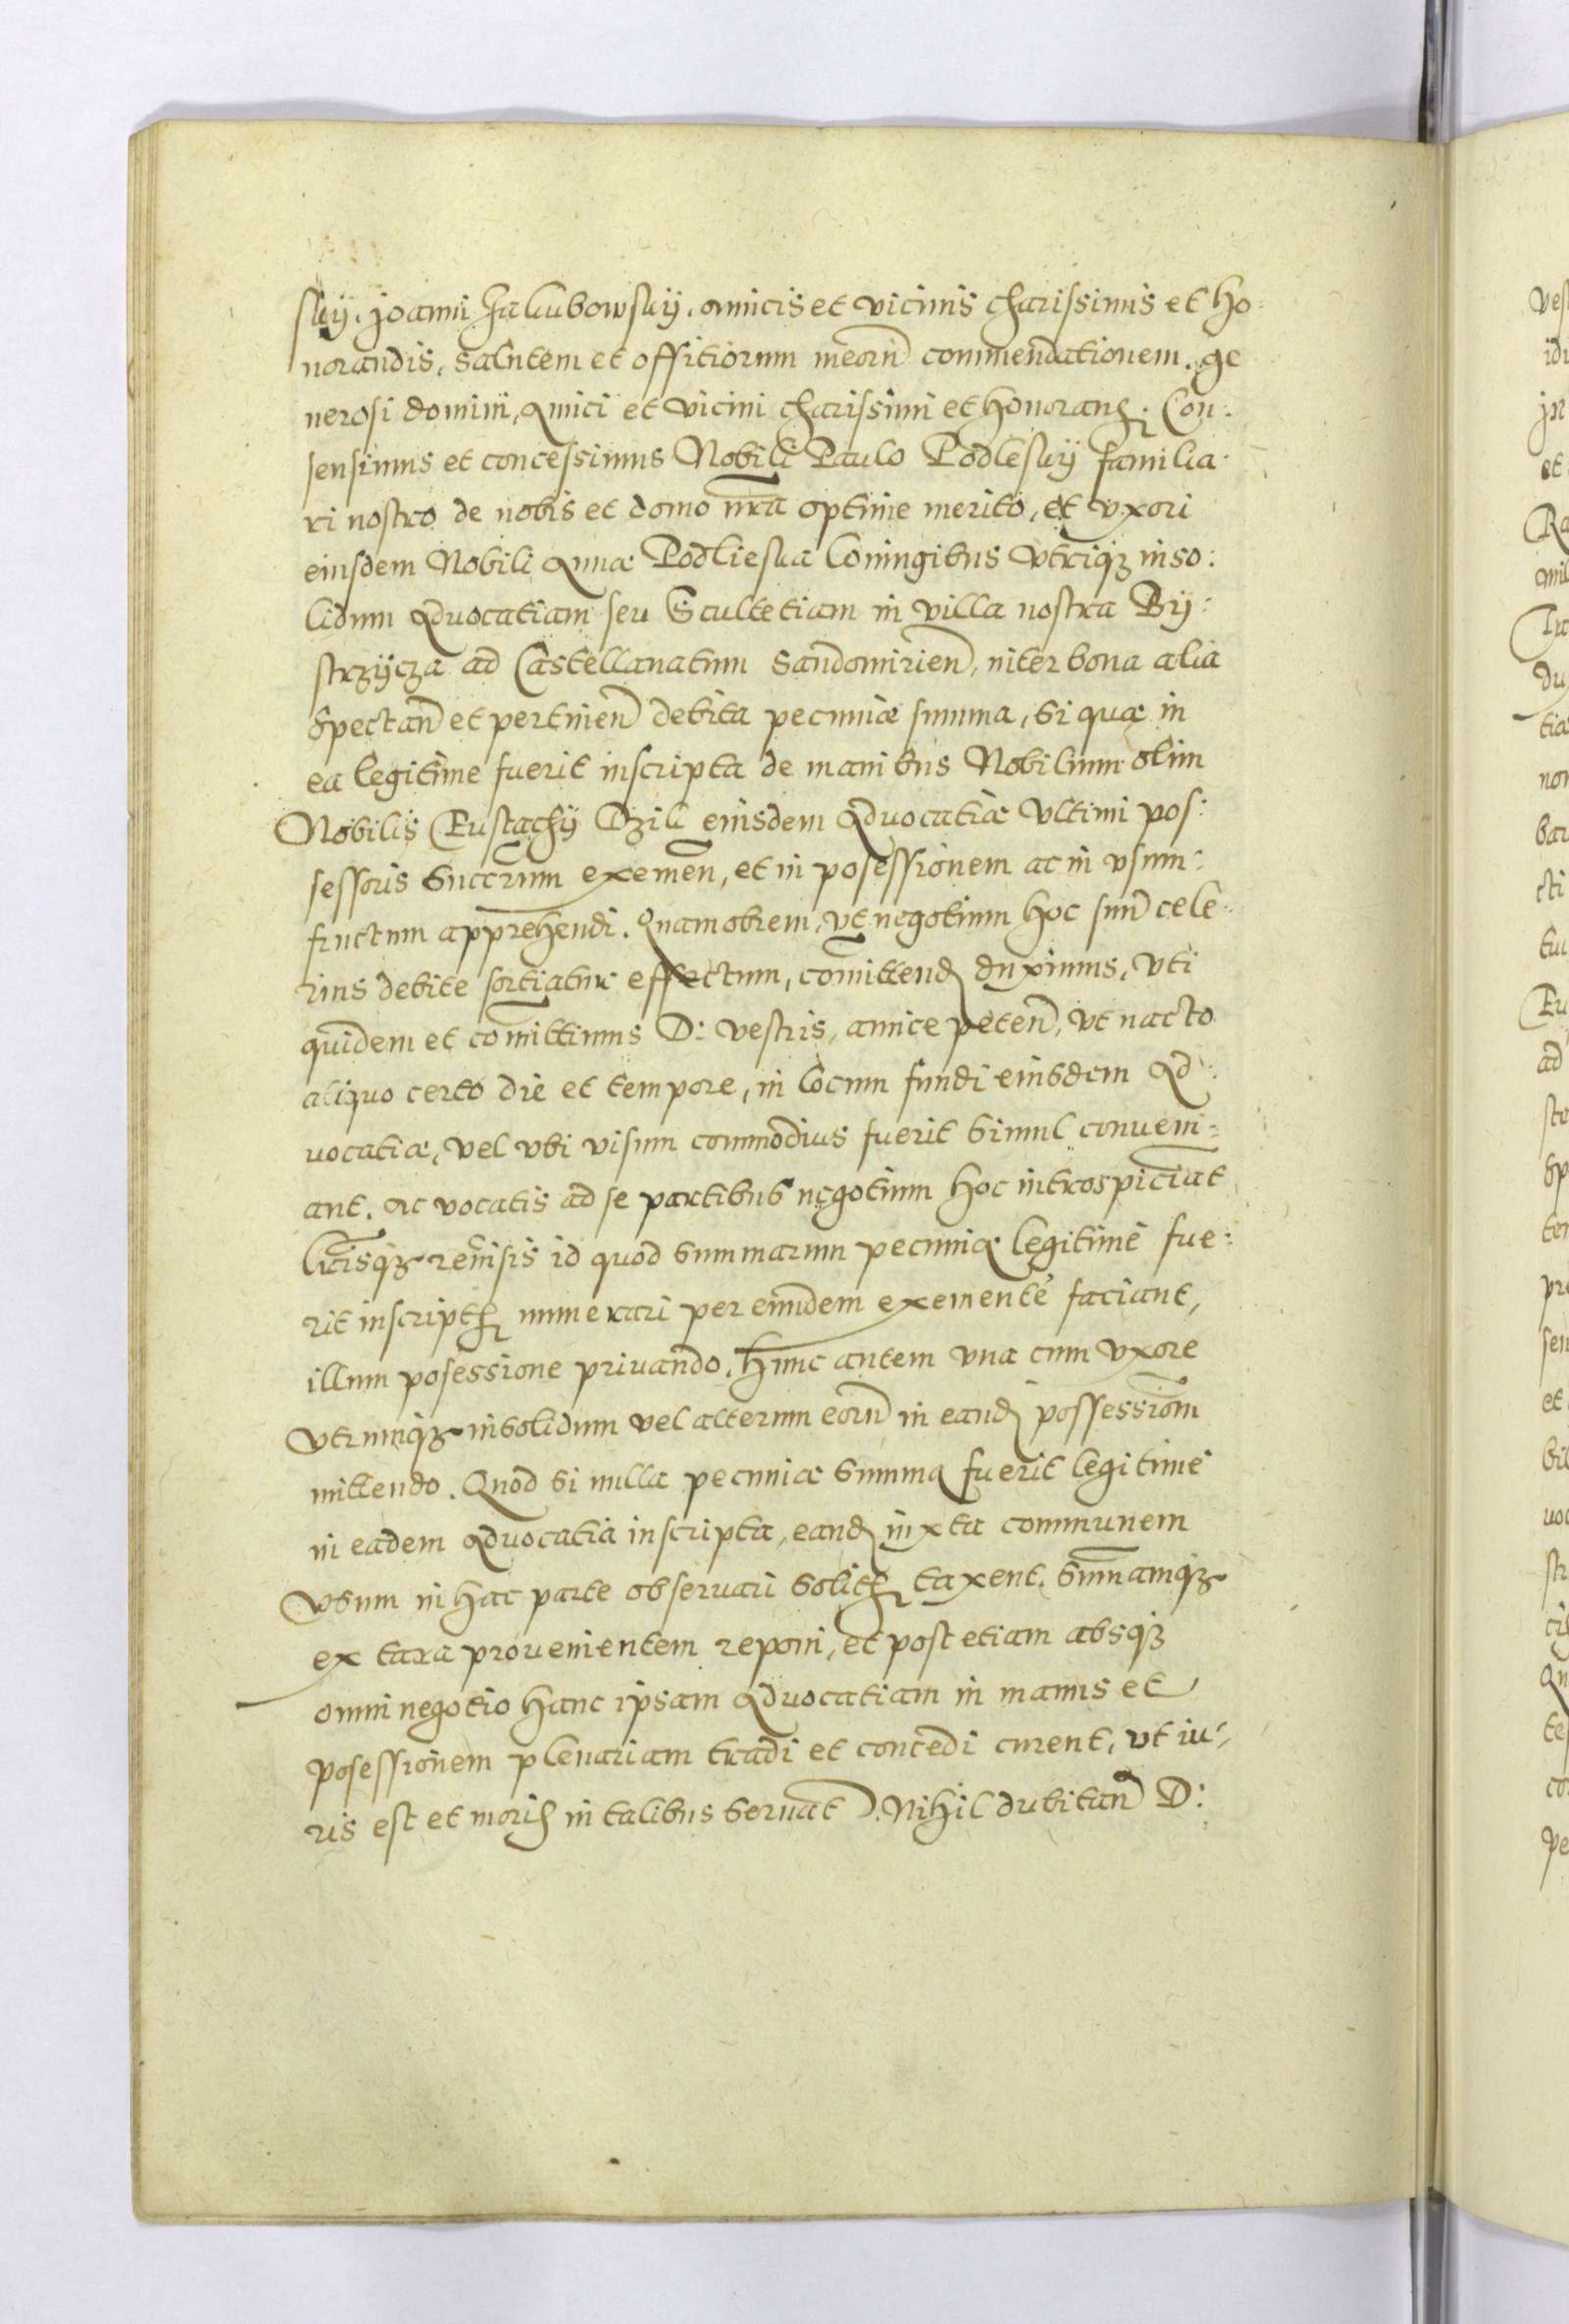 skij, Joanni Jakubowskij, amicis et vicinis charissimis et ho:
norandis, salutem et offitiorum meorū commendationem. ge
nerosi domini, Amici et vicini charissimi et honoran. Con:
sensimus et concessimus Nobili Paulo Podleskij familia:
ri nostro de nobis et domo nr̄a optime merito, et vxori
eiusdem Nobili Annæ Podlieska Coniugibus vtriqȝ in so:
lidum Aduocatiam seu Scultetiam in villa nostra Bij:
strzijcza ad Castellanatum Sandomirien̄, inter bona alia
spectan̄ et pertinen̄ debita pecuniæ summa, si quæ in
ea legitime fuerit inscripta de manibus Nobilium olim
Nobilis Eustachij Dzik eiusdem Aduocatiæ vltimi pos:
sessoris succrum exemen̄, et in posessionem ac in vsum:
fructum apprehendi. Quamobrem, vt negotium hoc suū cele:
rius debite sortiatur effectum, comittend duximus, vti
quidem et comittimus D: vestris, amice peten̄, vt nacto
aliquo certo die et tempore, in locum fundi eiusdem Ad:
uocatiæ, vel vbi visum commodius fuerit simul conueni:
ant. ac vocatis ad se partibus negotium hoc introspiciāt
Lr̄isqȝ reuisis id quod summarum pecuniæ legitime fue:
rit inscript numerari per eundem exemente faciant,
illum posessione priuando. Hunc autem vna cum vxore
vtrumqȝ insolidum vel alterum eorū in eand possessionē
mittendo. Quod si nulla pecuniæ summa fuerit legitime
in eadem Aduocatia inscripta, eand iuxta communem
vsum in hac parte obseruari solit taxent. Sum̄amqȝ
ex taxa prouenientem reponi, et post etiam absqȝ
omni negotio hanc ipsam Aduocatiam in manus et
posessionem plenariam tradi et concedi curent, vt iu:
ris est et moris in talibus seruat. Nihil dubitan̄ D: